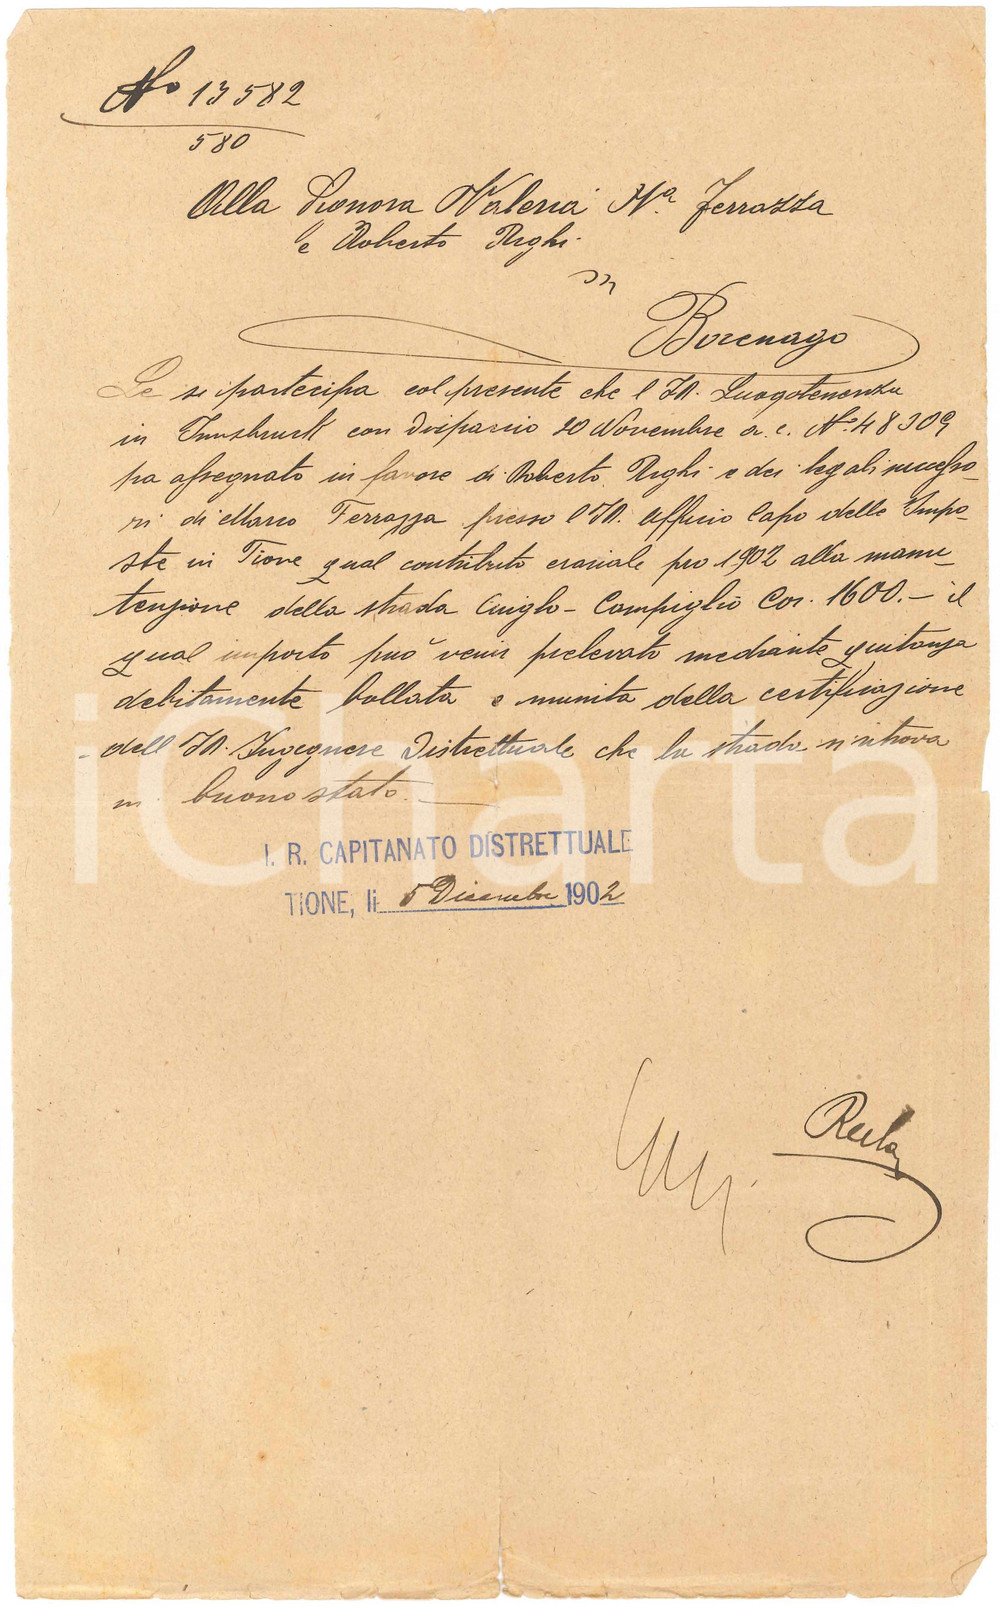 No 13582
580
Alla Signora Valeria Va. Ferrazza
e Roberto Righi
in
Bocenago
Le si partecipa col presente che l'I.R. Luogotenenza
in Innsbruck con dispaccio 20 Novembre a. c. No. 48309
ha assegnato in favore di Roberto Righi e dei legali successo-
ri di Marco Ferrazza presso l'I.R. Ufficio Capo delle Impo-
ste in Tione qual contributo erariale pro 1902 alla manu-
tenzione della strada Ginglo - Campiglio Cor. 1600.- il
qual importo può venir prelevato mediante quitanza
debitamente bollata e munita della certificazione
dell'I.R. Ingegnere Distrettuale che la strada si ritrova
in buono stato.
I. R. CAPITANATO DISTRETTUALE
TIONE, li 5 Dicembre 1902
iCharta